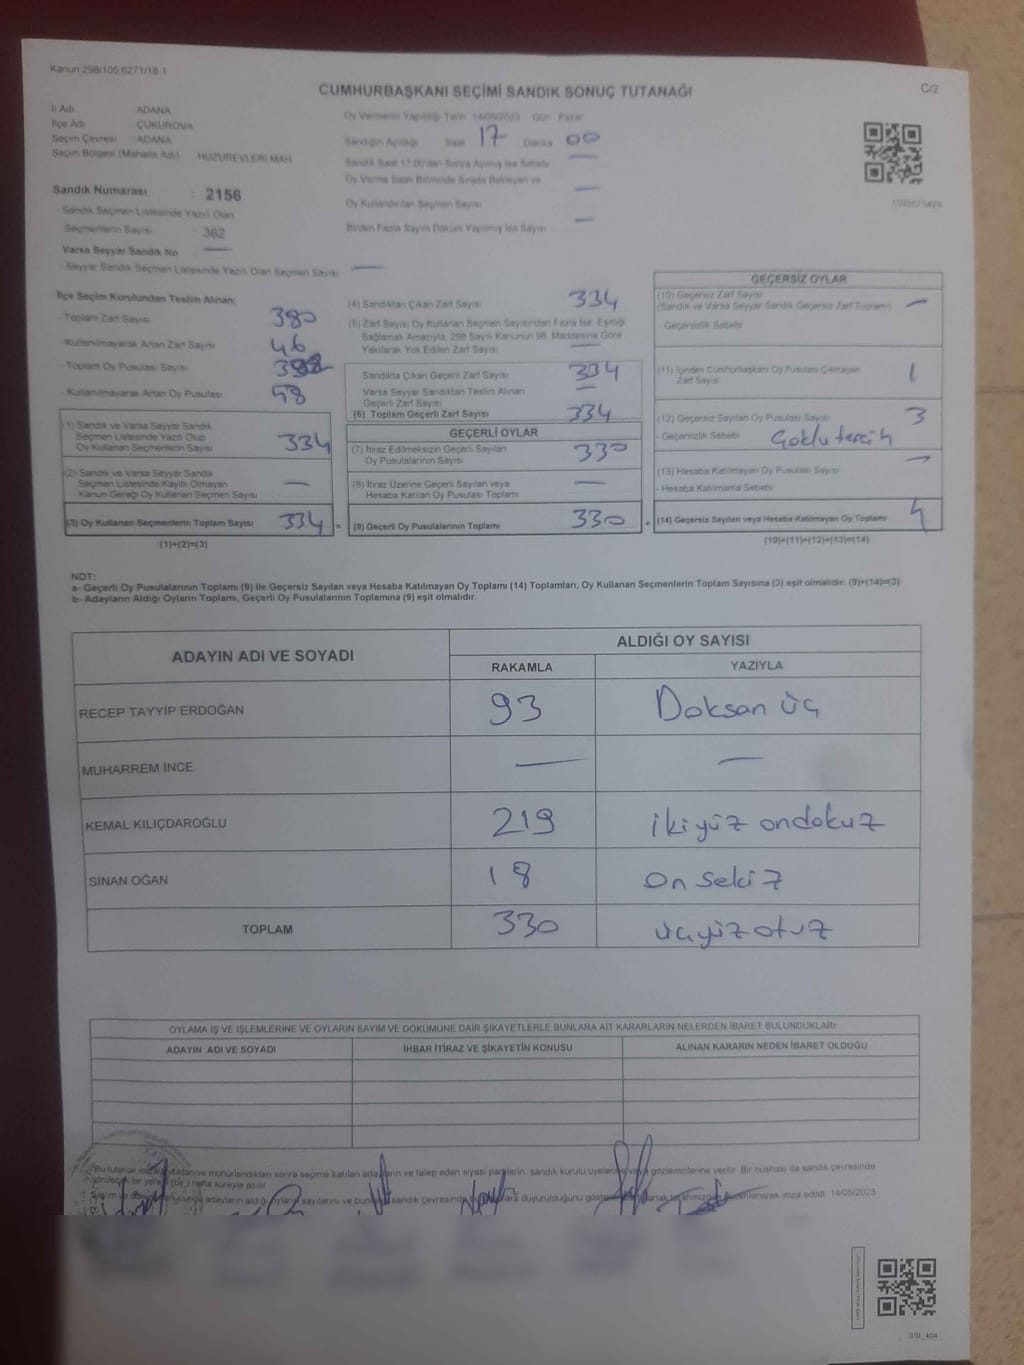 Kanun:298/105;6271/18-1
CUMHURBAŞKANI SEÇİMİ SANDIK SONUÇ TUTANAĞI
C/2
İl Adı ADANA
İlçe Adı ÇUKUROVA
Seçim Çevresi : ADANA
Seçim Bölgesi (Mahalle Adı) HUZUREVLERİ MAH.
Oy Vermenin Yapıldığı Tarih 14/05/2023 Gün Pazar
Sandığın Açıldığı Saat 17 Dakika 00
Sandık Saat 17:00'den Sonra Açılmış İse Sebebi —
Oy Verme Saati Bitiminde Sırada Bekleyen ve
Oy Kullandırılan Seçmen Sayısı —
Birden Fazla Sayım Döküm Yapılmış İse Sayısı —
Sandık Numarası : 2156
- Sandık Seçmen Listesinde Yazılı Olan
Seçmenlerin Sayısı : 362
Varsa Seyyar Sandık No —
- Seyyar Sandık Seçmen Listesinde Yazılı Olan Seçmen Sayısı —
İlçe Seçim Kurulundan Teslim Alınan:
- Toplam Zarf Sayısı 380
- Kullanılmayarak Artan Zarf Sayısı 46
- Toplam Oy Pusulası Sayısı
- Kullanılmayarak Artan Oy Pusulası 58
(1) Sandık ve Varsa Seyyar Sandık
Seçmen Listesinde Yazılı Olup
Oy Kullanan Seçmenlerin Sayısı 334
(2) Sandık ve Varsa Seyyar Sandık
Seçmen Listesinde Kayıtlı Olmayan
Kanun Gereği Oy Kullanan Seçmen Sayısı —
(3) Oy Kullanan Seçmenlerin Toplam Sayısı 334 =
(1)+(2)=(3)
(4) Sandıktan Çıkan Zarf Sayısı 334
(5) Zarf Sayısı Oy Kullanan Seçmen Sayısından Fazla İse, Eşitliği
Sağlamak Amacıyla, 298 Sayılı Kanunun 98. Maddesine Göre
Yakılarak Yok Edilen Zarf Sayısı —
Sandıkta Çıkan Geçerli Zarf Sayısı 334
Varsa Seyyar Sandıktan Teslim Alınan
Geçerli Zarf Sayısı —
(6) Toplam Geçerli Zarf Sayısı 334
GEÇERLİ OYLAR
(7) İtiraz Edilmeksizin Geçerli Sayılan
Oy Pusulalarının Sayısı 330
(8) İtiraz Üzerine Geçerli Sayılan veya
Hesaba Katılan Oy Pusulası Toplamı —
(9) Geçerli Oy Pusulalarının Toplamı 330 +
GEÇERSİZ OYLAR
(10) Geçersiz Zarf Sayısı
(Sandık ve Varsa Seyyar Sandık Geçersiz Zarf Toplamı) —
- Geçersizlik Sebebi
(11) İçinden Cumhurbaşkanı Oy Pusulası Çıkmayan
Zarf Sayısı 1
(12) Geçersiz Sayılan Oy Pusulası Sayısı 3
- Geçersizlik Sebebi Çoklu tercih
(13) Hesaba Katılmayan Oy Pusulası Sayısı —
- Hesaba Katılmama Sebebi
(14) Geçersiz Sayılan veya Hesaba Katılmayan Oy Toplamı 4
(10)+(11)+(12)+(13)=(14)
NOT:
a- Geçerli Oy Pusulalarının Toplamı (9) ile Geçersiz Sayılan veya Hesaba Katılmayan Oy Toplamı (14) Toplamları, Oy Kullanan Seçmenlerin Toplam Sayısına (3) eşit olmalıdır. (9)+(14)=(3)
b- Adayların Aldığı Oyların Toplamı, Geçerli Oy Pusulalarının Toplamına (9) eşit olmalıdır.
ADAYIN ADI VE SOYADI ALDIĞI OY SAYISI
RAKAMLA YAZIYLA
RECEP TAYYİP ERDOĞAN 93 Doksan üç
MUHARREM İNCE — —
KEMAL KILIÇDAROĞLU 219 iki yüz ondokuz
SİNAN OĞAN 18 On sekiz
TOPLAM 330 üçyüz otuz
OYLAMA İŞ VE İŞLEMLERİNE VE OYLARIN SAYIM VE DÖKÜMÜNE DAİR ŞİKAYETLERLE BUNLARA AİT KARARLARIN NELERDEN İBARET BULUNDUKLARI
ADAYIN ADI VE SOYADI İHBAR İTİRAZ VE ŞİKAYETİN KONUSU ALINAN KARARIN NEDEN İBARET OLDUĞU
Bu tutanak mühürlendikten sonra seçime katılan adayların ve talep eden siyasi partilerin sandık kurulu üyelerine veya gözlemcilerine verilir. Bir nüshası da sandık çevresinde
bir yere (bir) hafta süreyle asılır.
adayların aldığı sayılarını ve sandık çevresinde duyurulduğunu imza edildi. 14/05/2023